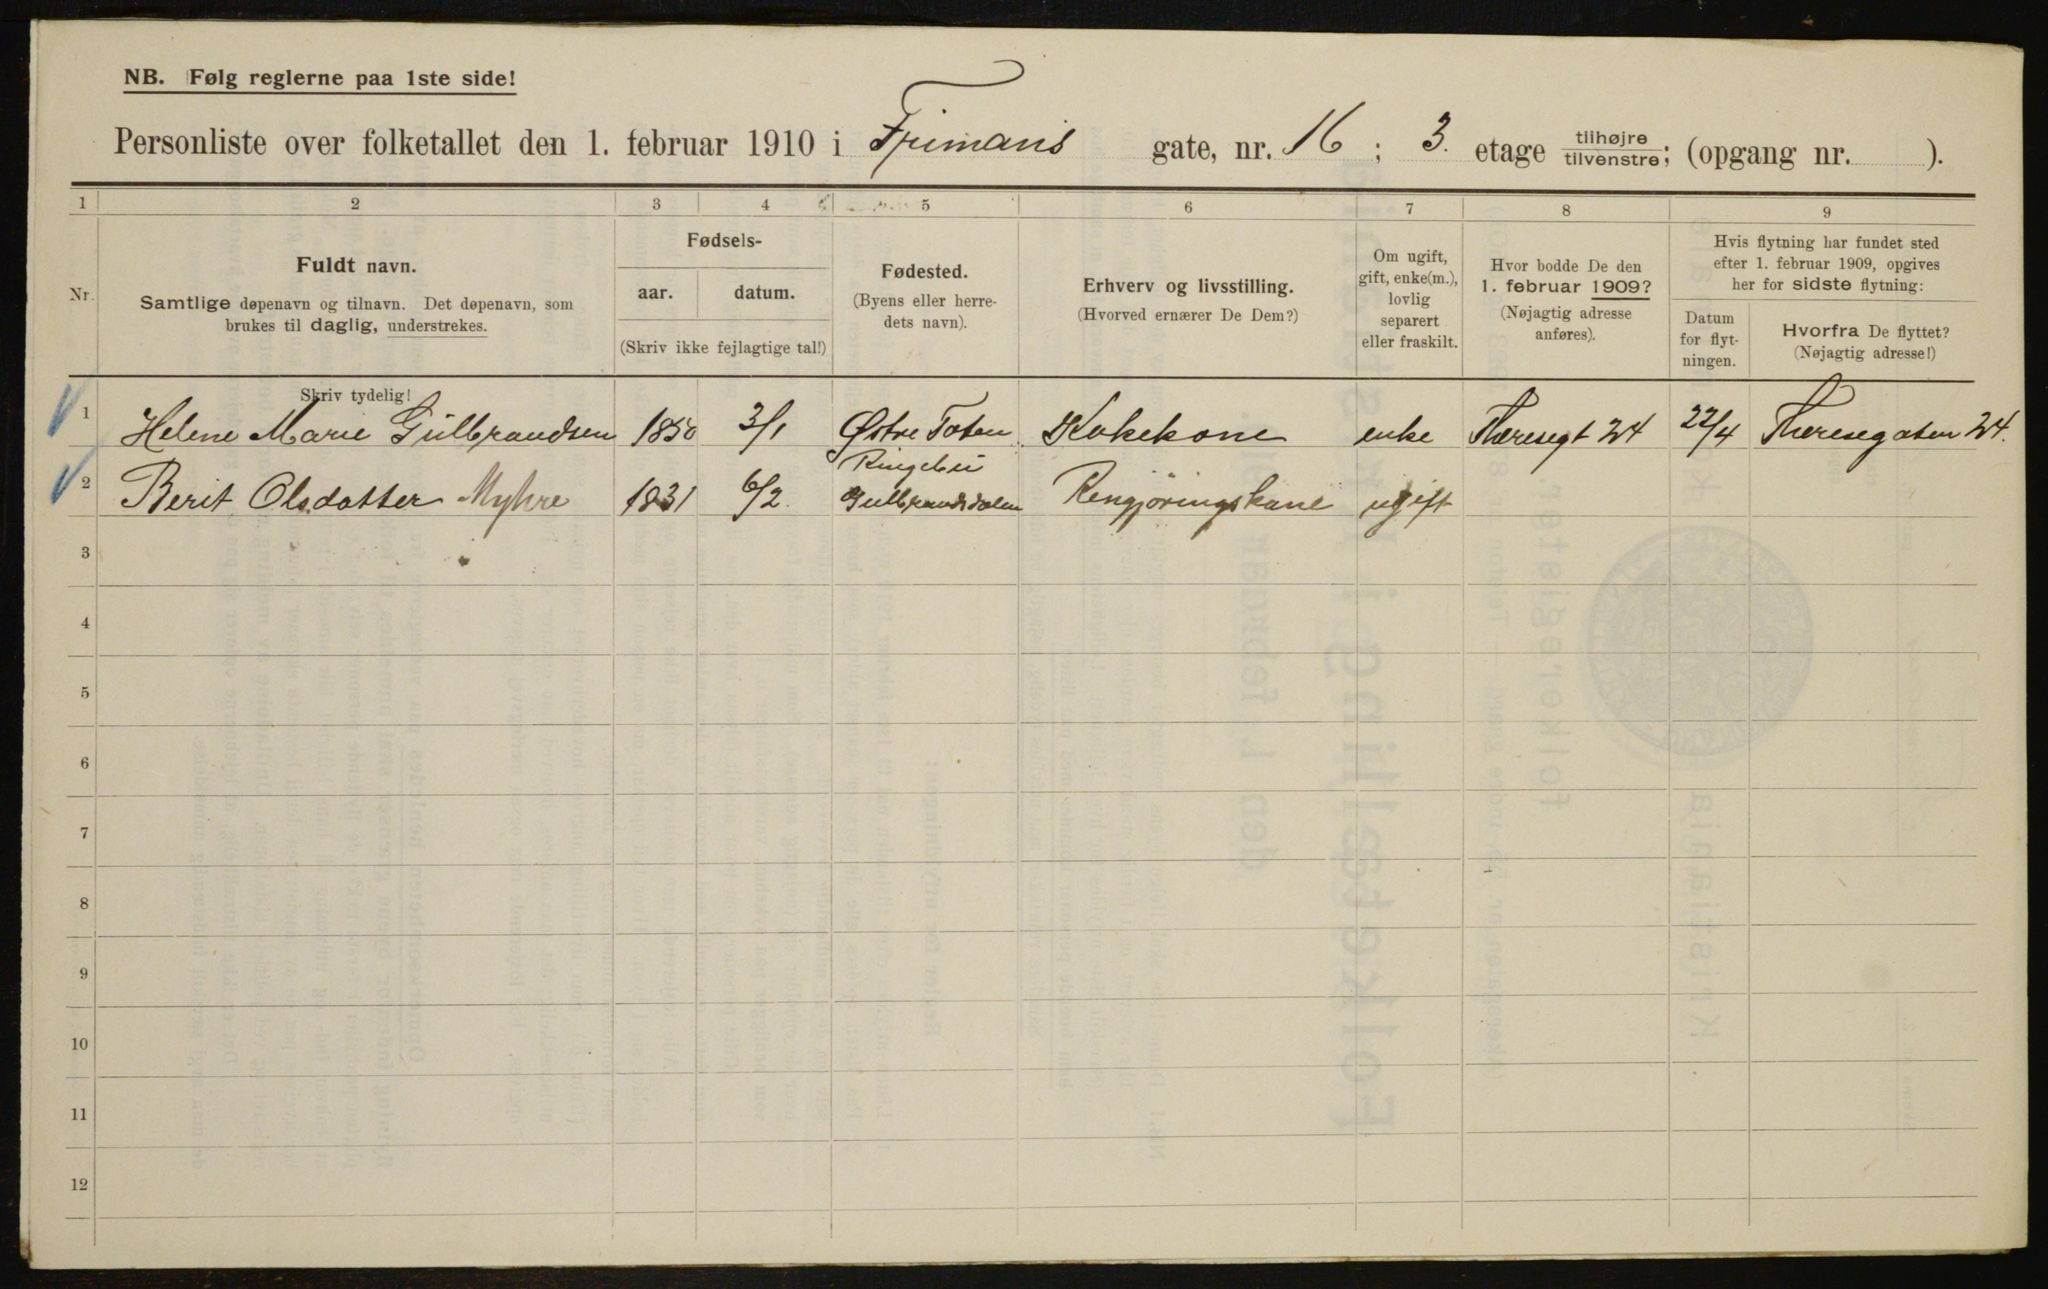 NB. Følg reglerne paa 1ste side!
Personliste over folketallet den 1. februar 1910 i Frimans gate, nr. 16; 3. etage tilhøjre/tilvenstre; (opgang nr. ).
1 2 3 4 5 6 7 8 9
Nr.
Fuldt navn.
Samtlige døpenavn og tilnavn. Det døpenavn, som
brukes til daglig, understrekes.
Fødsels-
aar. datum.
(Skriv ikke fejlagtige tal!)
Fødested.
(Byens eller herre-
dets navn).
Erhverv og livsstilling.
(Hvorved ernærer De Dem?)
Om ugift,
gift, enke(m.),
lovlig
separert
eller fraskilt.
Hvor bodde De den
1. februar 1909?
(Nøjagtig adresse
anføres).
Hvis flytning har fundet sted
efter 1. februar 1909, opgives
her for sidste flytning:
Datum
for flyt-
ningen.
Hvorfra De flyttet?
(Nøjagtig adresse!)
Skriv tydelig!
1 Helene Marie Gulbrandsen 1850 3/1 Østre Toten Kokekone enke Theresegt 24 22/4 Theresegaten 24.
Ringebu
2 Berit Olsdatter Myhre 1831 6/2 Gulbrandsdalen Rengjøringskone ugift
3
4
5
6
7
8
9
10
11
12